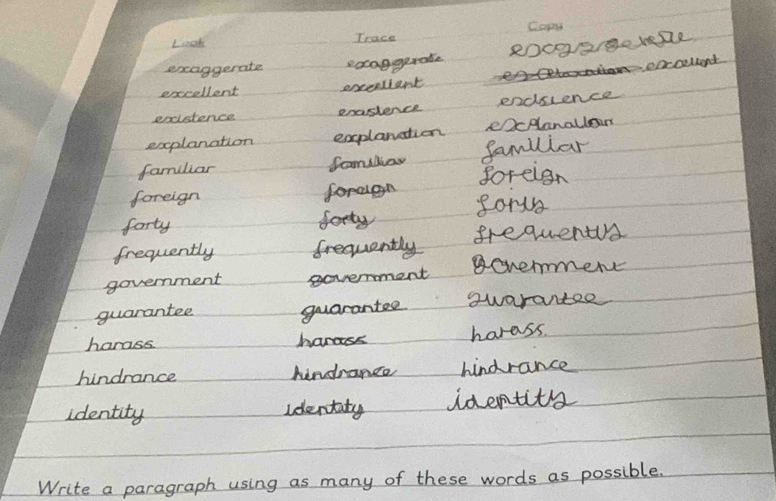 Look Trace Copy
exaggerate exaggerate
excellent excellent excellent
existence existence
explanation explanation
familiar familiar familiar
foreign foreign foreign
forty forty forty
frequently frequently frequently
government government government
guarantee guarantee guarantee
harass harass harass.
hindrance hindrance hindrance
identity identity identity
Write a paragraph using as many of these words as possible.